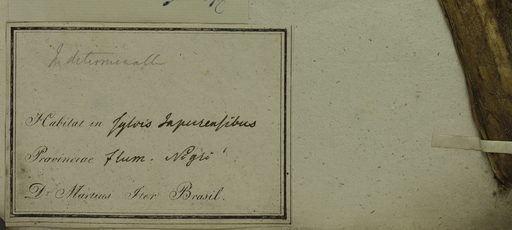 Indeterminabl
Habitat in sylvis Japurensibus
Provinciae flum. Nigri
Dr. Martius Iter Brasil.